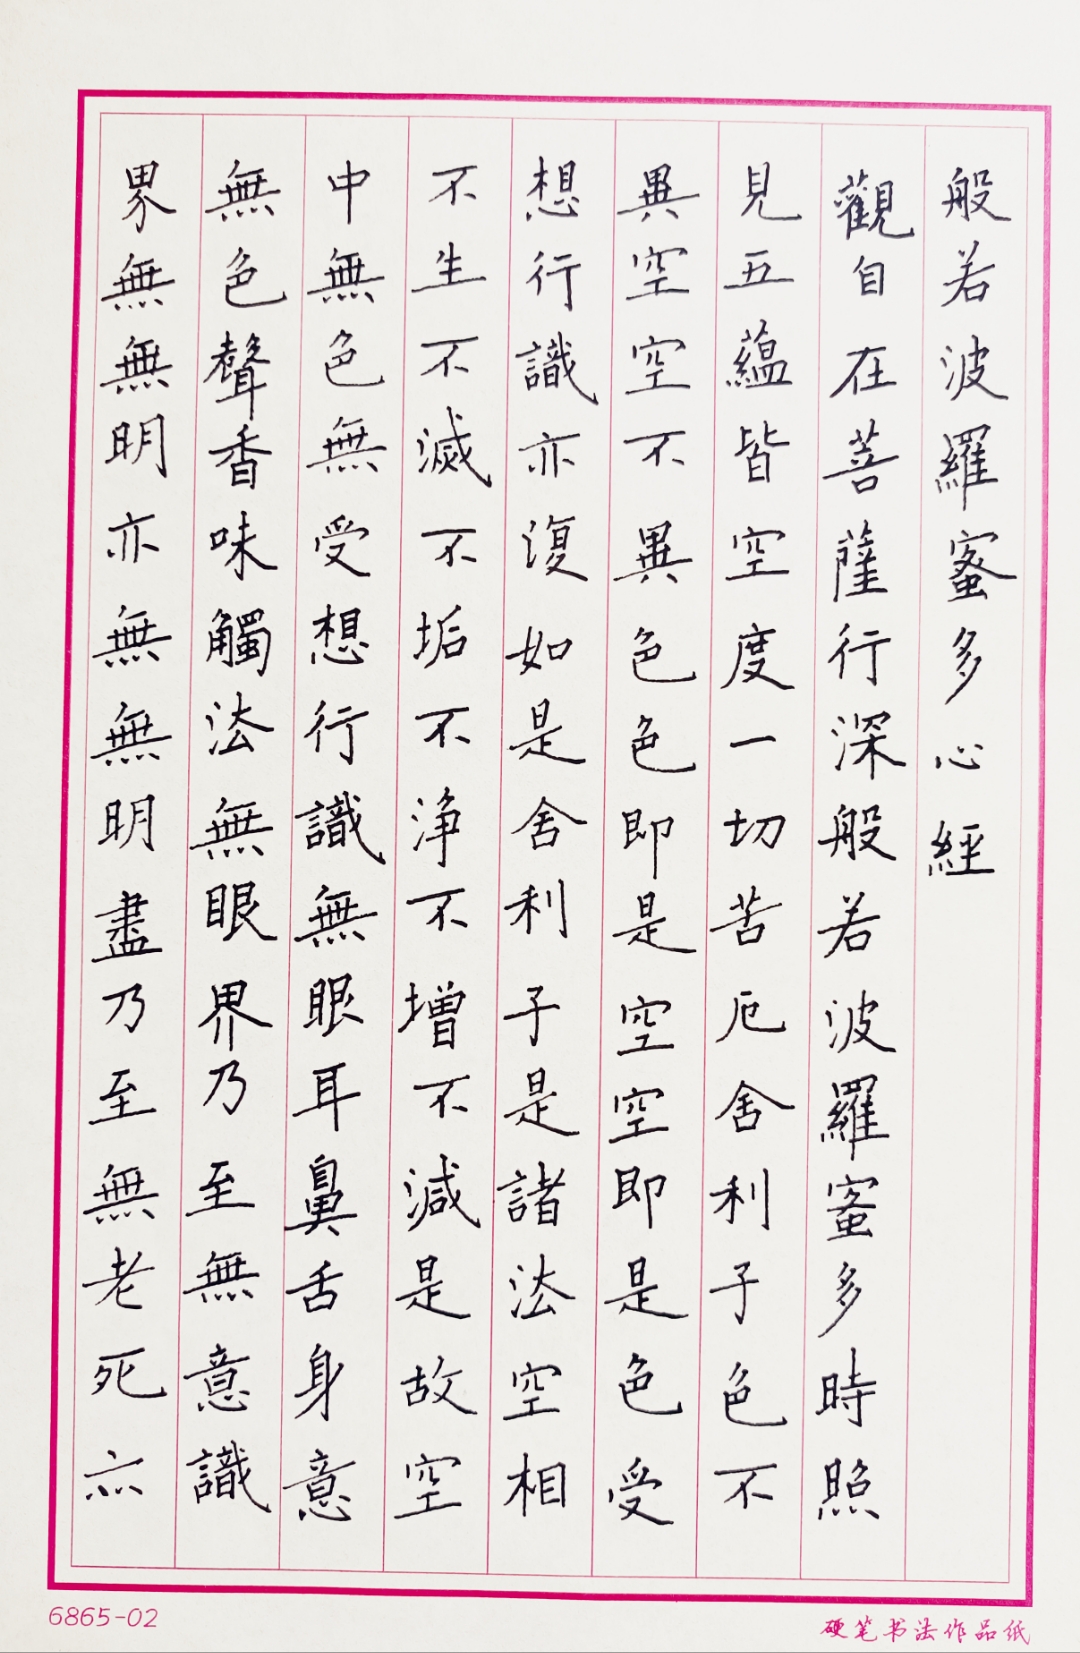 般若波羅蜜多心經
觀自在菩薩行深般若波羅蜜多時照
見五蘊皆空度一切苦厄舍利子色不
異空空不異色色即是空空即是色受
想行識亦復如是舍利子是諸法空相
不生不滅不垢不淨不增不減是故空
中無色無受想行識無眼耳鼻舌身意
無色聲香味觸法無眼界乃至無意識
界無無明亦無無明盡乃至無老死亦
6865-02
硬笔书法作品纸